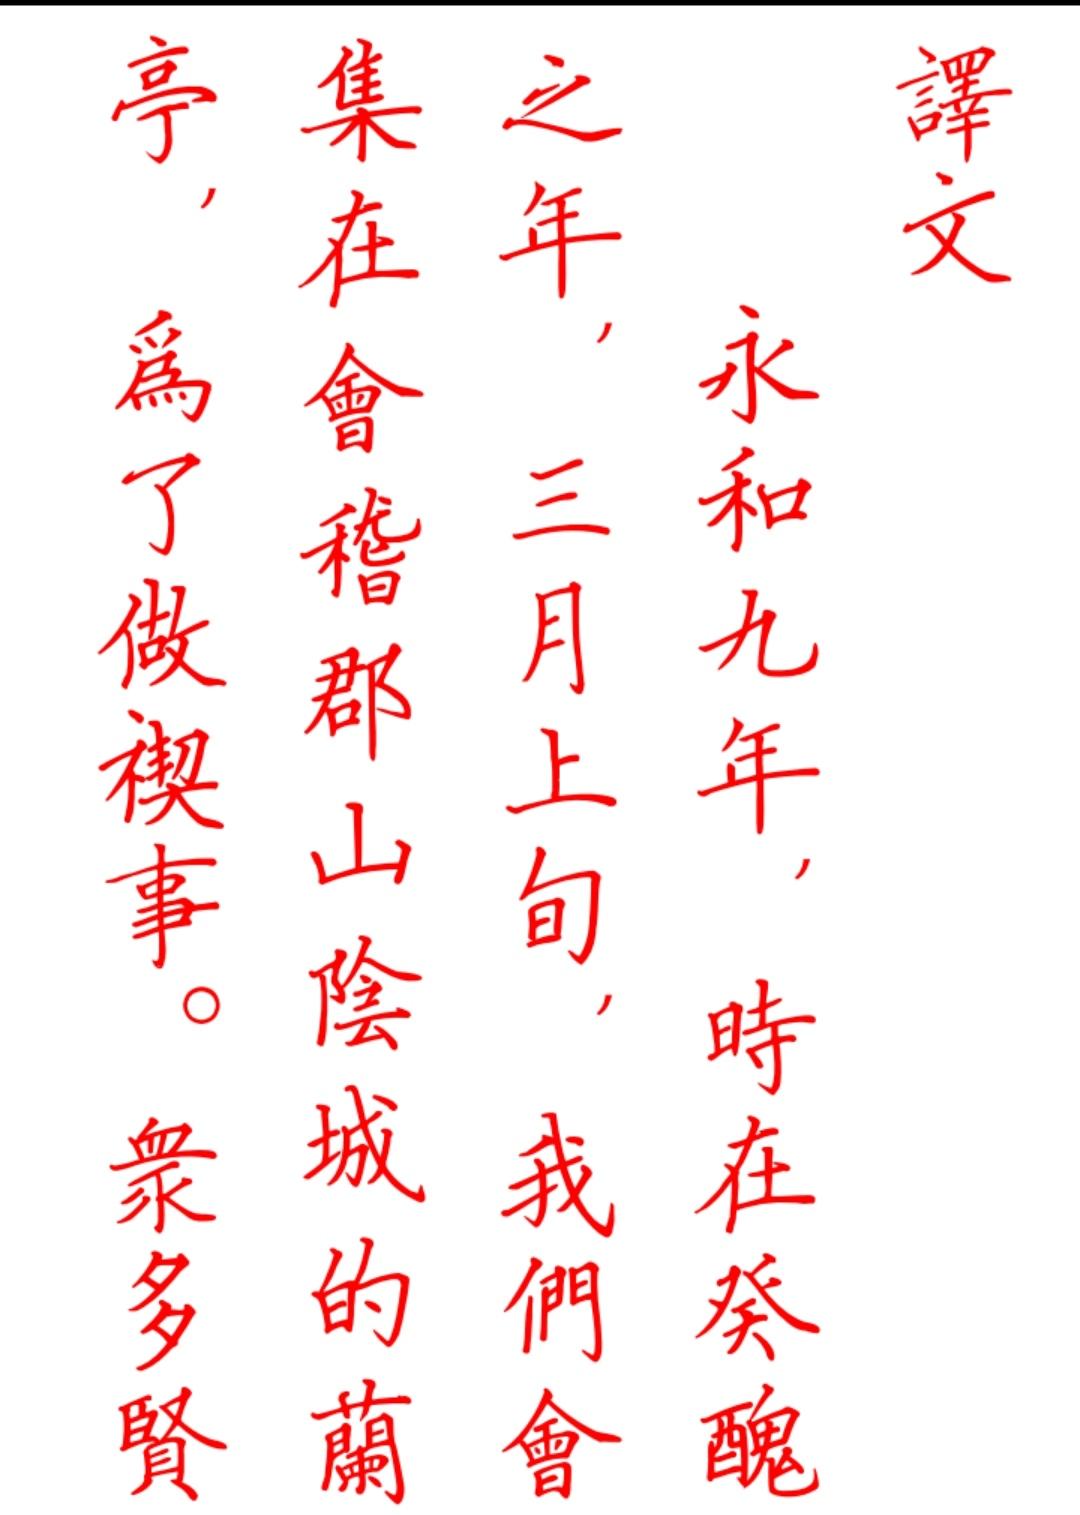 譯文
永和九年，時在癸醜
之年，三月上旬，我們會
集在會稽郡山陰城的蘭
亭，爲了做禊事。衆多賢